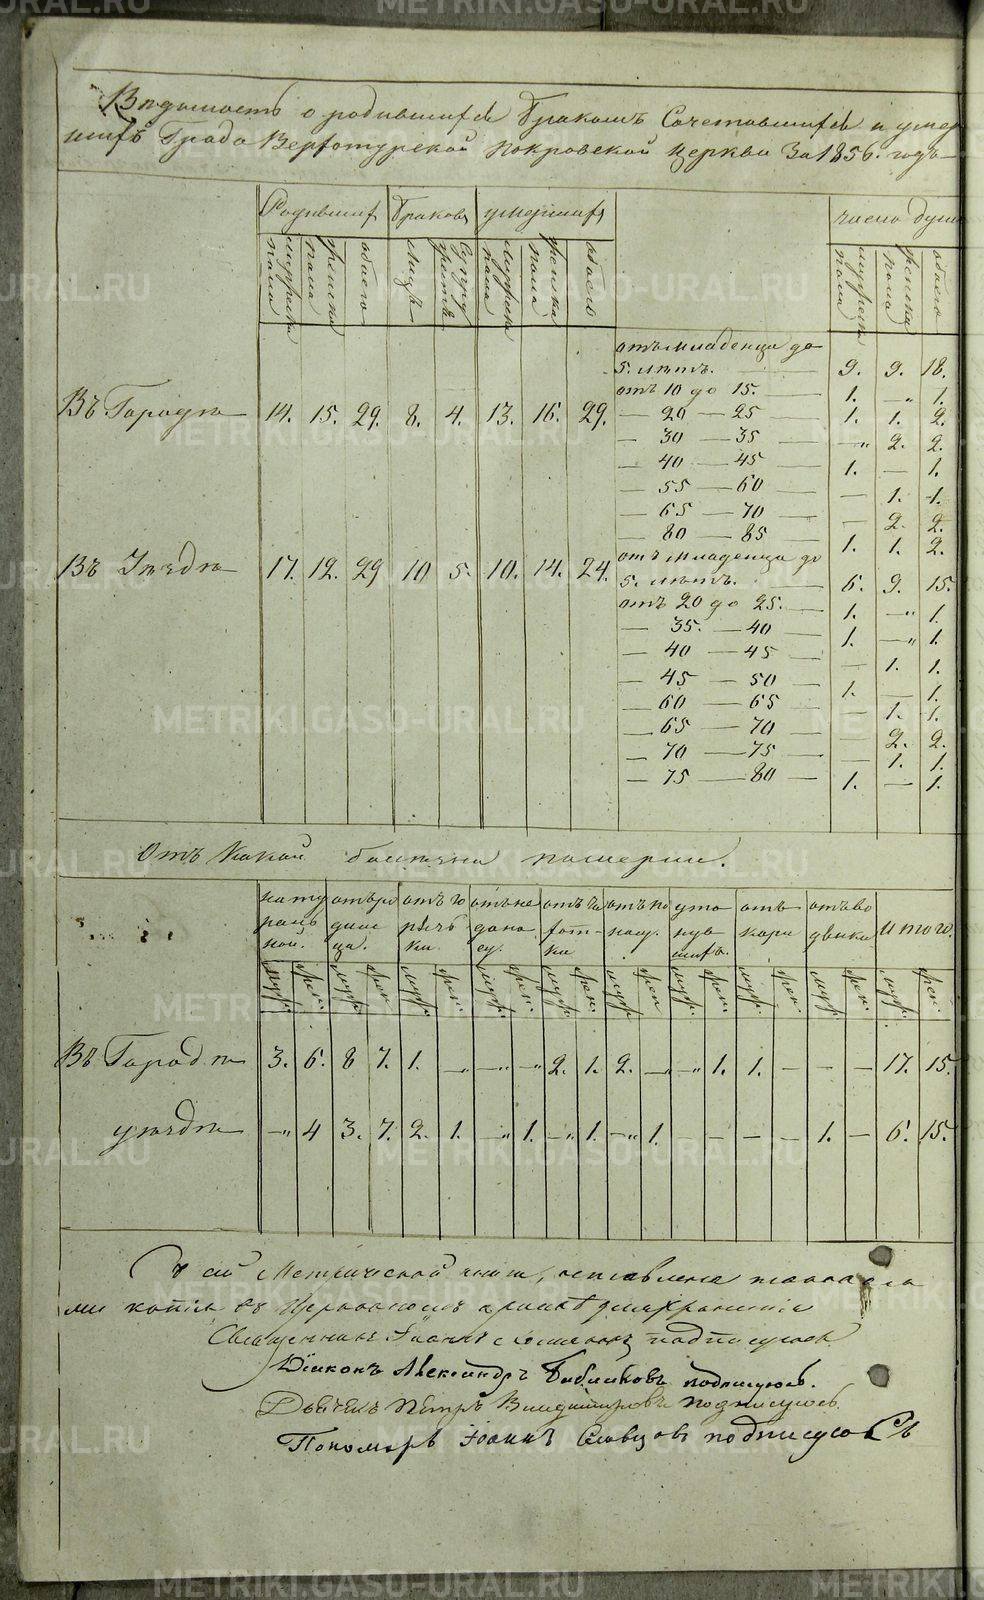 METRIKI.GASO-URAL.RU
Ведомость о родившихся Бракомъ Сочетавшихся и умер
шихъ Града Верхотурской Покровской Церкви За 1856. годъ
Родившихся Браковъ умершихъ число душ
мужеска пола женска пола обоего лицъ супружествъ мужеска пола женска пола обоего мужеска пола женска пола обоего
отъ младенца до
5. летъ. 9. 9. 18.
отъ 10 до 15. 1. — „ 1.
Въ Городе 14. 15. 29. 8. 4. 13. 16. 29.
— 20 — 25 — 1. 1. 2.
— 30 — 35 — „ 2. 2.
— 40 — 45 — 1. — 1.
— 55 — 60 — — 1. 1.
— 65 — 70 — — 2. 2.
— 80 — 85 — 1. 1. 2.
Въ Уезде 17. 12. 29 10 5. 10. 14. 24.
отъ младенца до
5. летъ. 6. 9. 15.
отъ 20 до 25. 1. — „ 1.
— 35. — 40 — 1. — „ 1.
— 40 — 45 — — 1. 1.
— 45 — 50 — 1. — 1.
— 60 — 65 — — 1. 1.
— 65 — 70 — — 2. 2.
— 70 — 75 — — 1. 1.
— 75 — 80 — 1. — 1.
Отъ Какой болезни померли.
натуральной. отъ родимца. отъ горячки. отъ чахотки отъ поносу. утонувшихъ. отъ кори отъ водянки итого.
муж. жен. муж. жен. муж. жен. муж. жен. муж. жен. муж. жен. муж. жен. муж. жен. муж. жен. муж. жен.
Въ Городе 3. 6. 8 7. 1. — „ — „ — „ 2. 1. 2. — „ — „ 1. 1. — — — 17. 15.
уезде — „ 4 3. 7. 2. 1. — „ 1. — „ 1. — „ 1. — — — — 1. — 6. 15.
Съ сей Метрической книги, оставлена
копия въ Церковномъ архиве для хранения
Священникъ Iоаннъ подписуюсь
Дiаконъ Александръ подписуюсь.
Дьячекъ Петръ подписуюсь.
Пономарь Iоаннъ Словцовъ подписуюСь